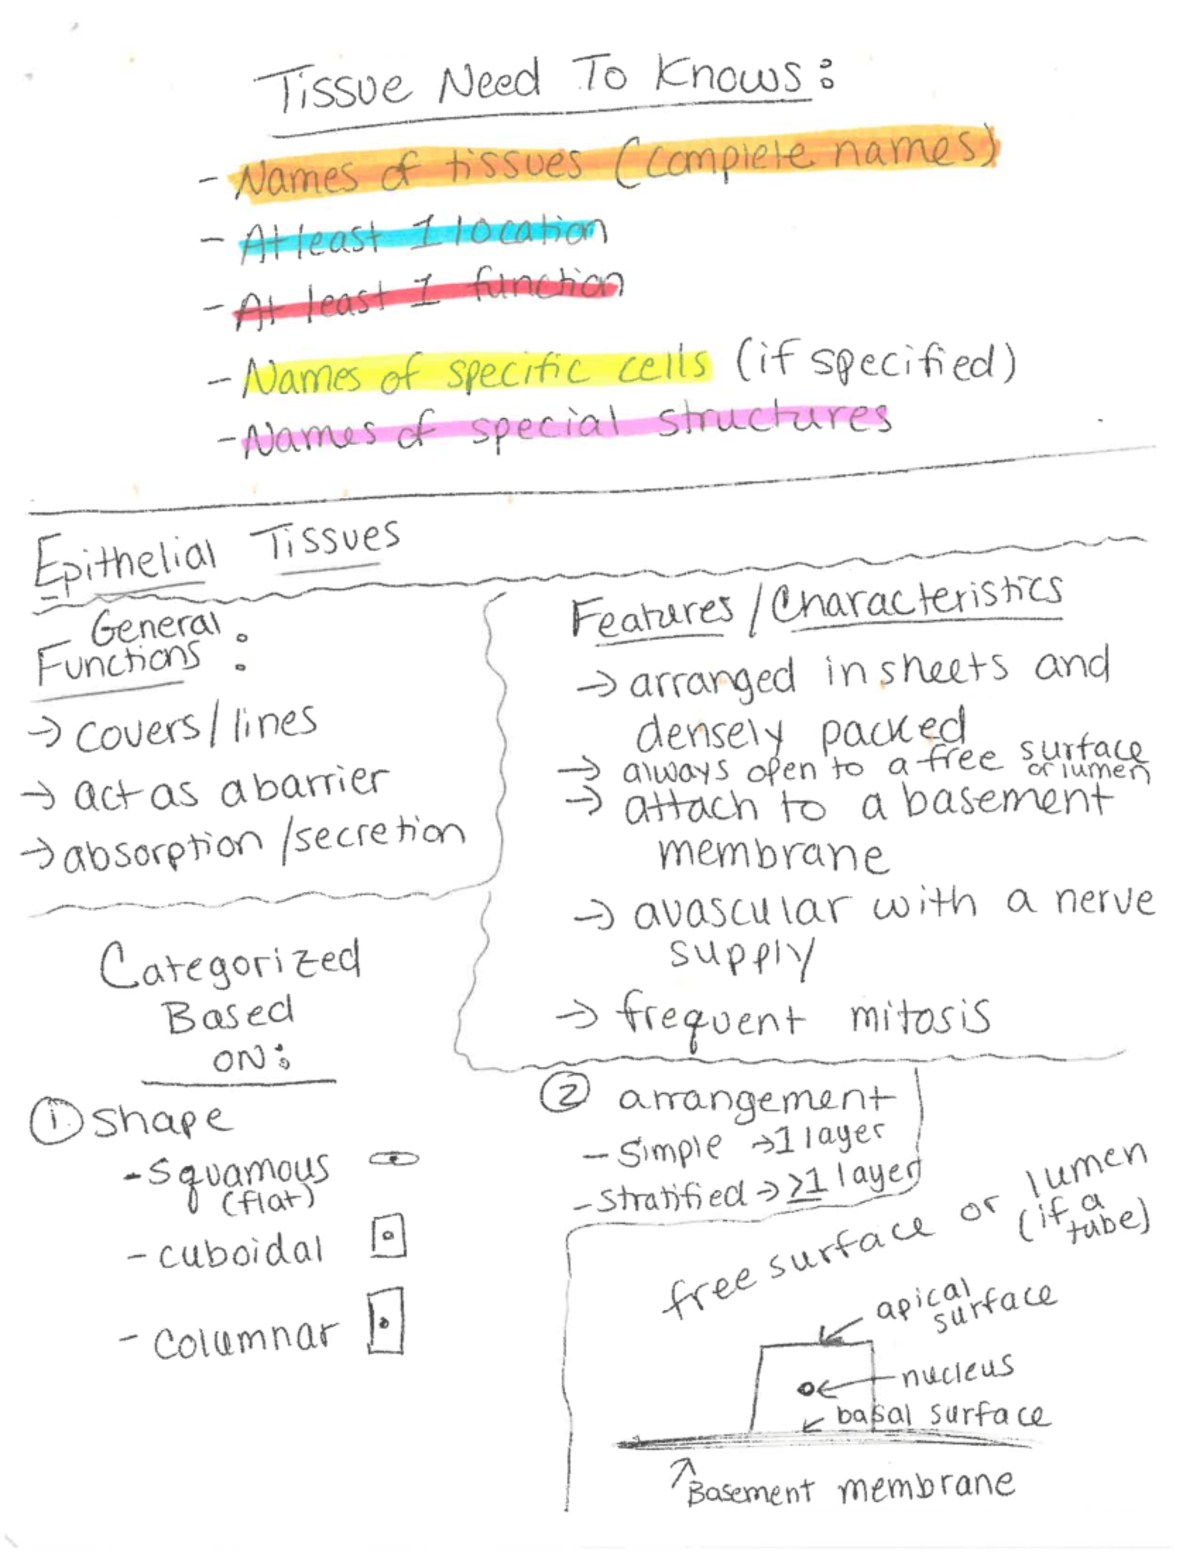 Tissue Need To Knows:
- Names of tissues (complete names)
- At least 1 location
- At least 1 function
- Names of specific cells (if specified)
- Names of special structures
Epithelial Tissues
General
Functions:
→ covers/lines
→ act as a barrier
→ absorption/secretion
Features/Characteristics
→ arranged in sheets and
densely packed
→ always open to a free surface
or lumen
→ attach to a basement
membrane
→ avascular with a nerve
supply
→ frequent mitosis
Categorized
Based
ON:
① Shape
- Squamous
(flat)
- cuboidal
- Columnar
② arrangement
- Simple → 1 layer
- Stratified → >1 layer
free surface or lumen
(if a
tube)
apical
surface
nucleus
basal surface
Basement membrane